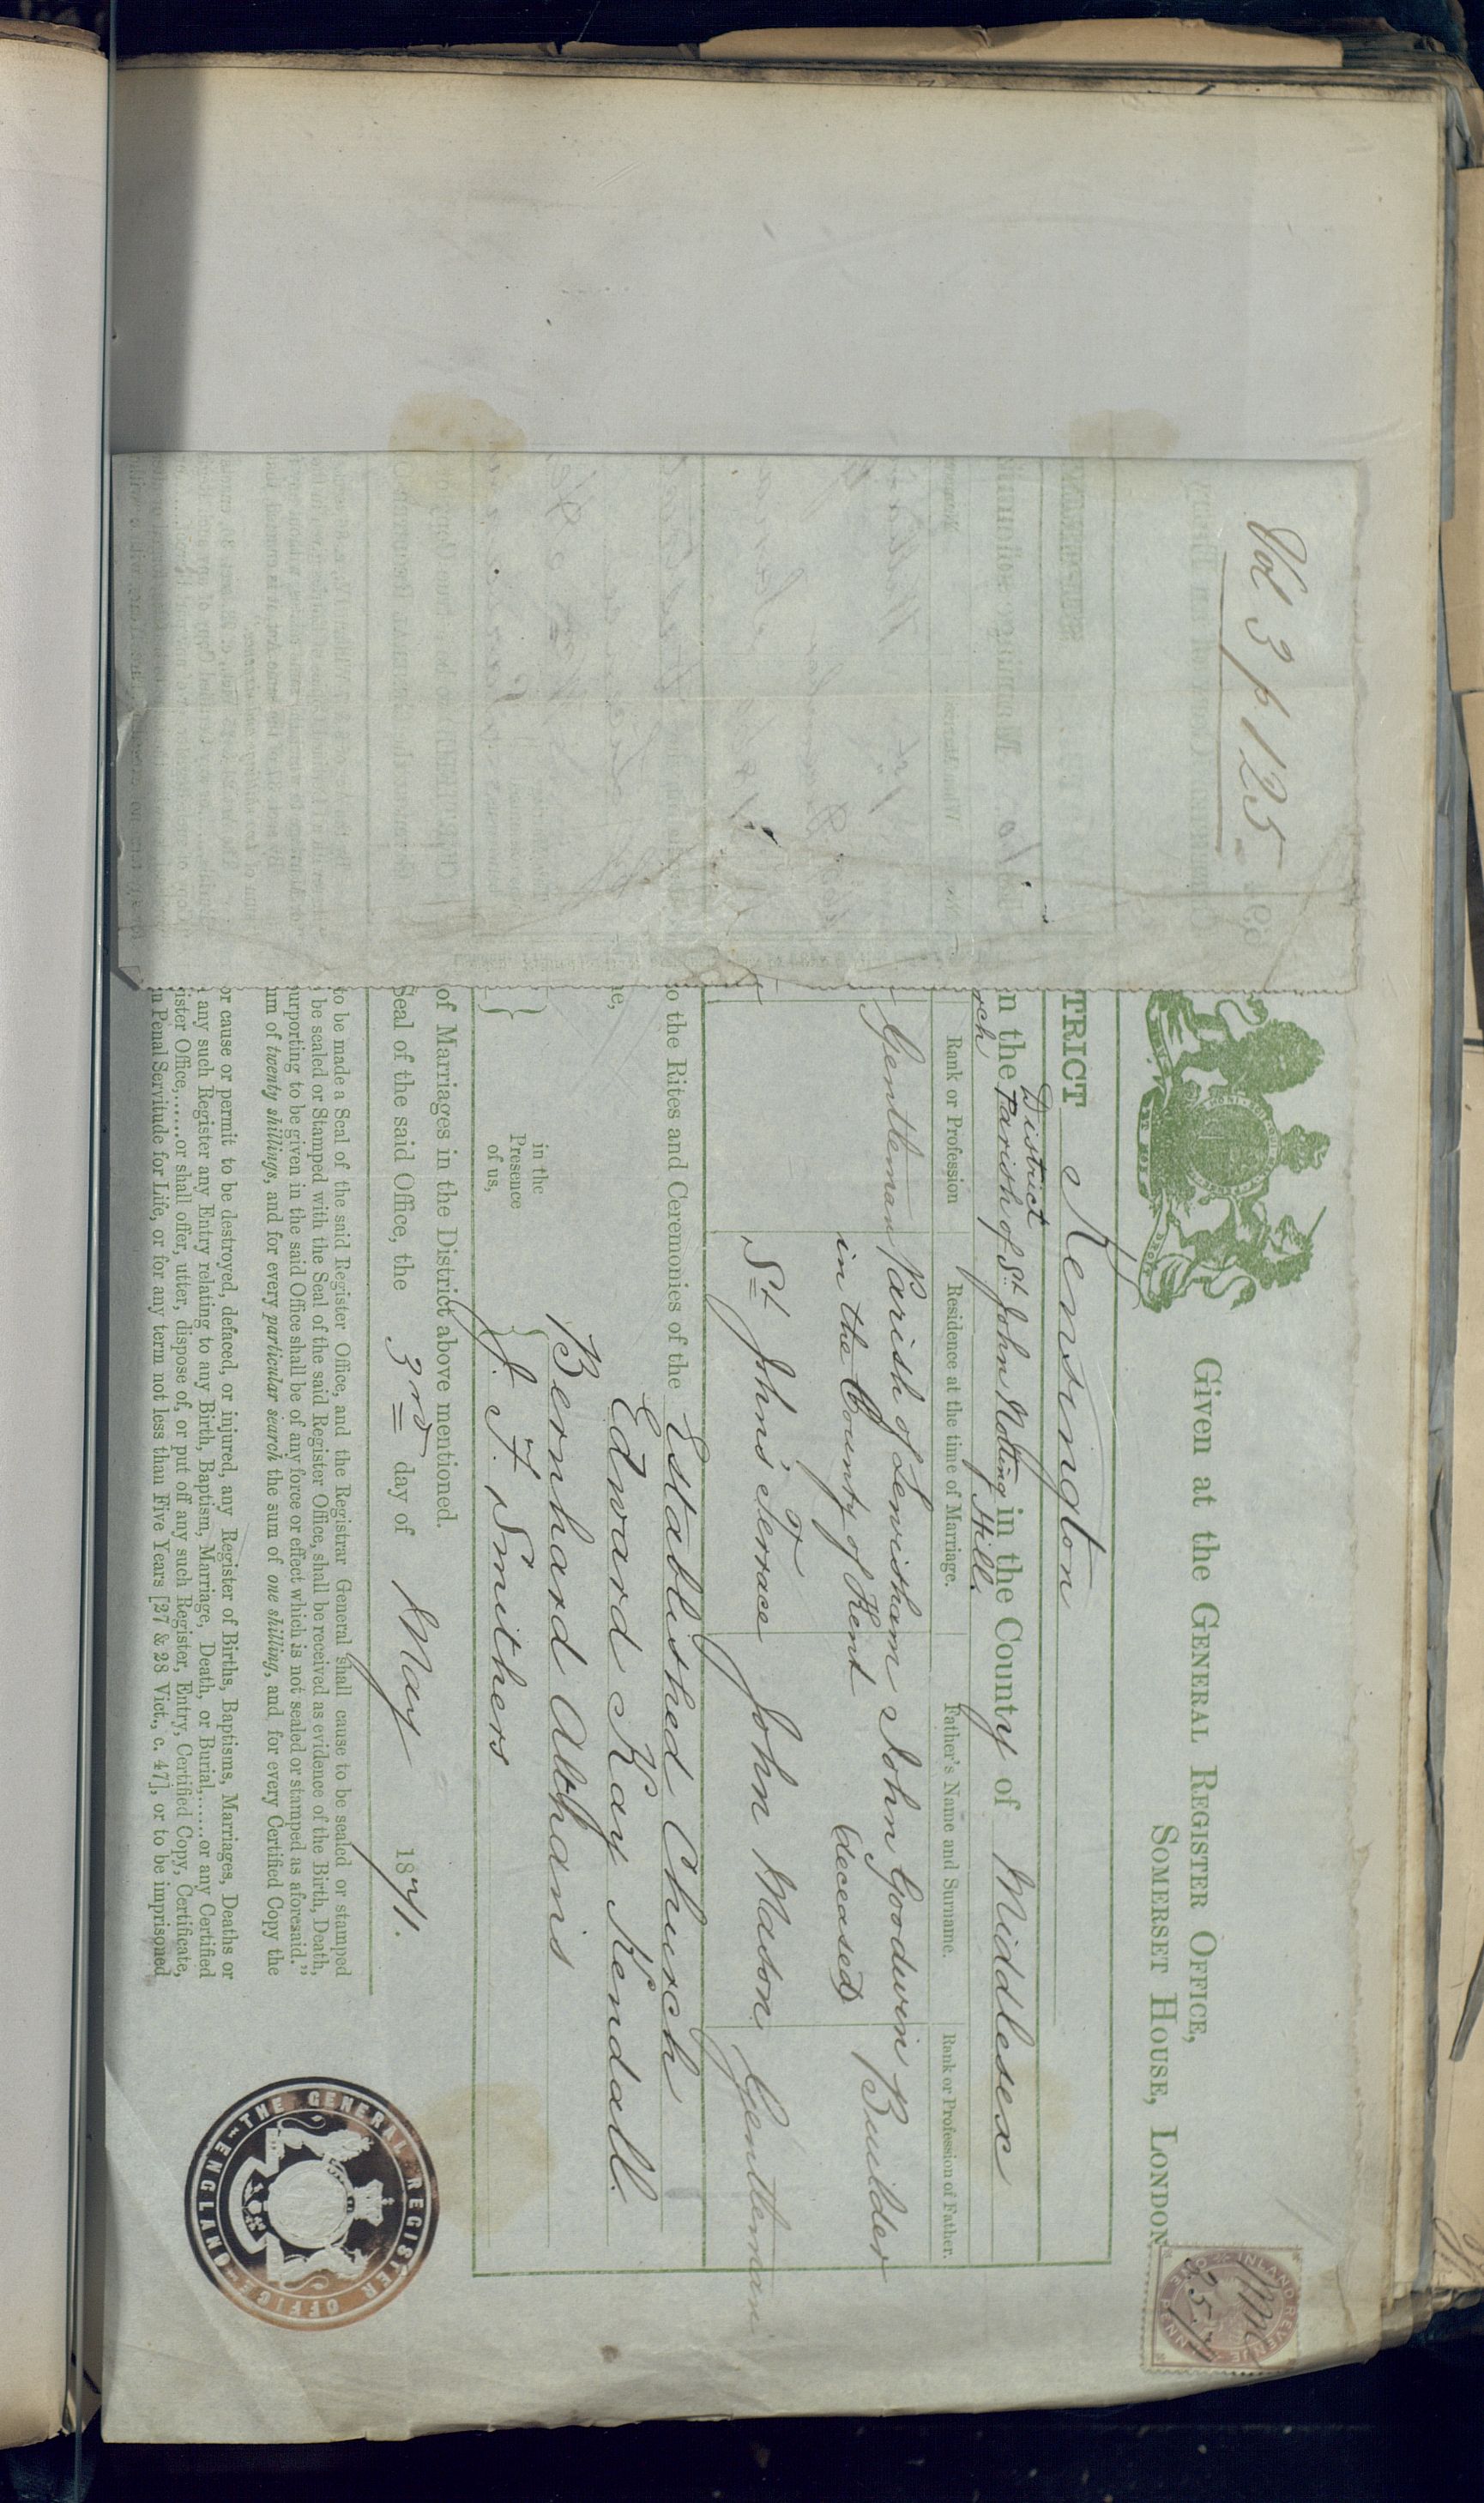 Vol 3 p 125
Given at the GENERAL REGISTER OFFICE,
SOMERSET HOUSE, LONDON
INLAND REVENUE
ONE PENNY
TRICT Kensington
District
n the Parish of St. John Notting in the County of Middlesex
rch Hill.
Rank or Profession Residence at the time of Marriage. Father's Name and Surname. Rank or Profession of Father.
Gentleman Parish of Lewisham John Goodwin Builder
in the County of Kent (deceased)
St Johns Terrace John Mason Gentleman
o the Rites and Ceremonies of the Established Church
Edward Kay Kendall.
e,
in the
Presence
of us,
Bernhard Althans
J. F. Smithers
of Marriages in the District above mentioned.
Seal of the said Office, the 3rd day of May 1871.
to be made a Seal of the said Register Office, and the Registrar General shall cause to be sealed or stamped
be sealed or Stamped with the Seal of the said Register Office, shall be received as evidence of the Birth, Death,
urporting to be given in the said Office shall be of any force or effect which is not sealed or stamped as aforesaid."
um of twenty shillings, and for every particular search the sum of one shilling, and for every Certified Copy the
or cause or permit to be destroyed, defaced, or injured, any Register of Births, Baptisms, Marriages, Deaths or
any such Register any Entry relating to any Birth, Baptism, Marriage, Death, or Burial,......or any Certified
ister Office,......or shall offer, utter, dispose of, or put off any such Register, Entry, Certified Copy, Certificate,
n Penal Servitude for Life, or for any term not less than Five Years [27 & 28 Vict., c. 47], or to be imprisoned
THE GENERAL REGISTER OFFICE ENGLAND